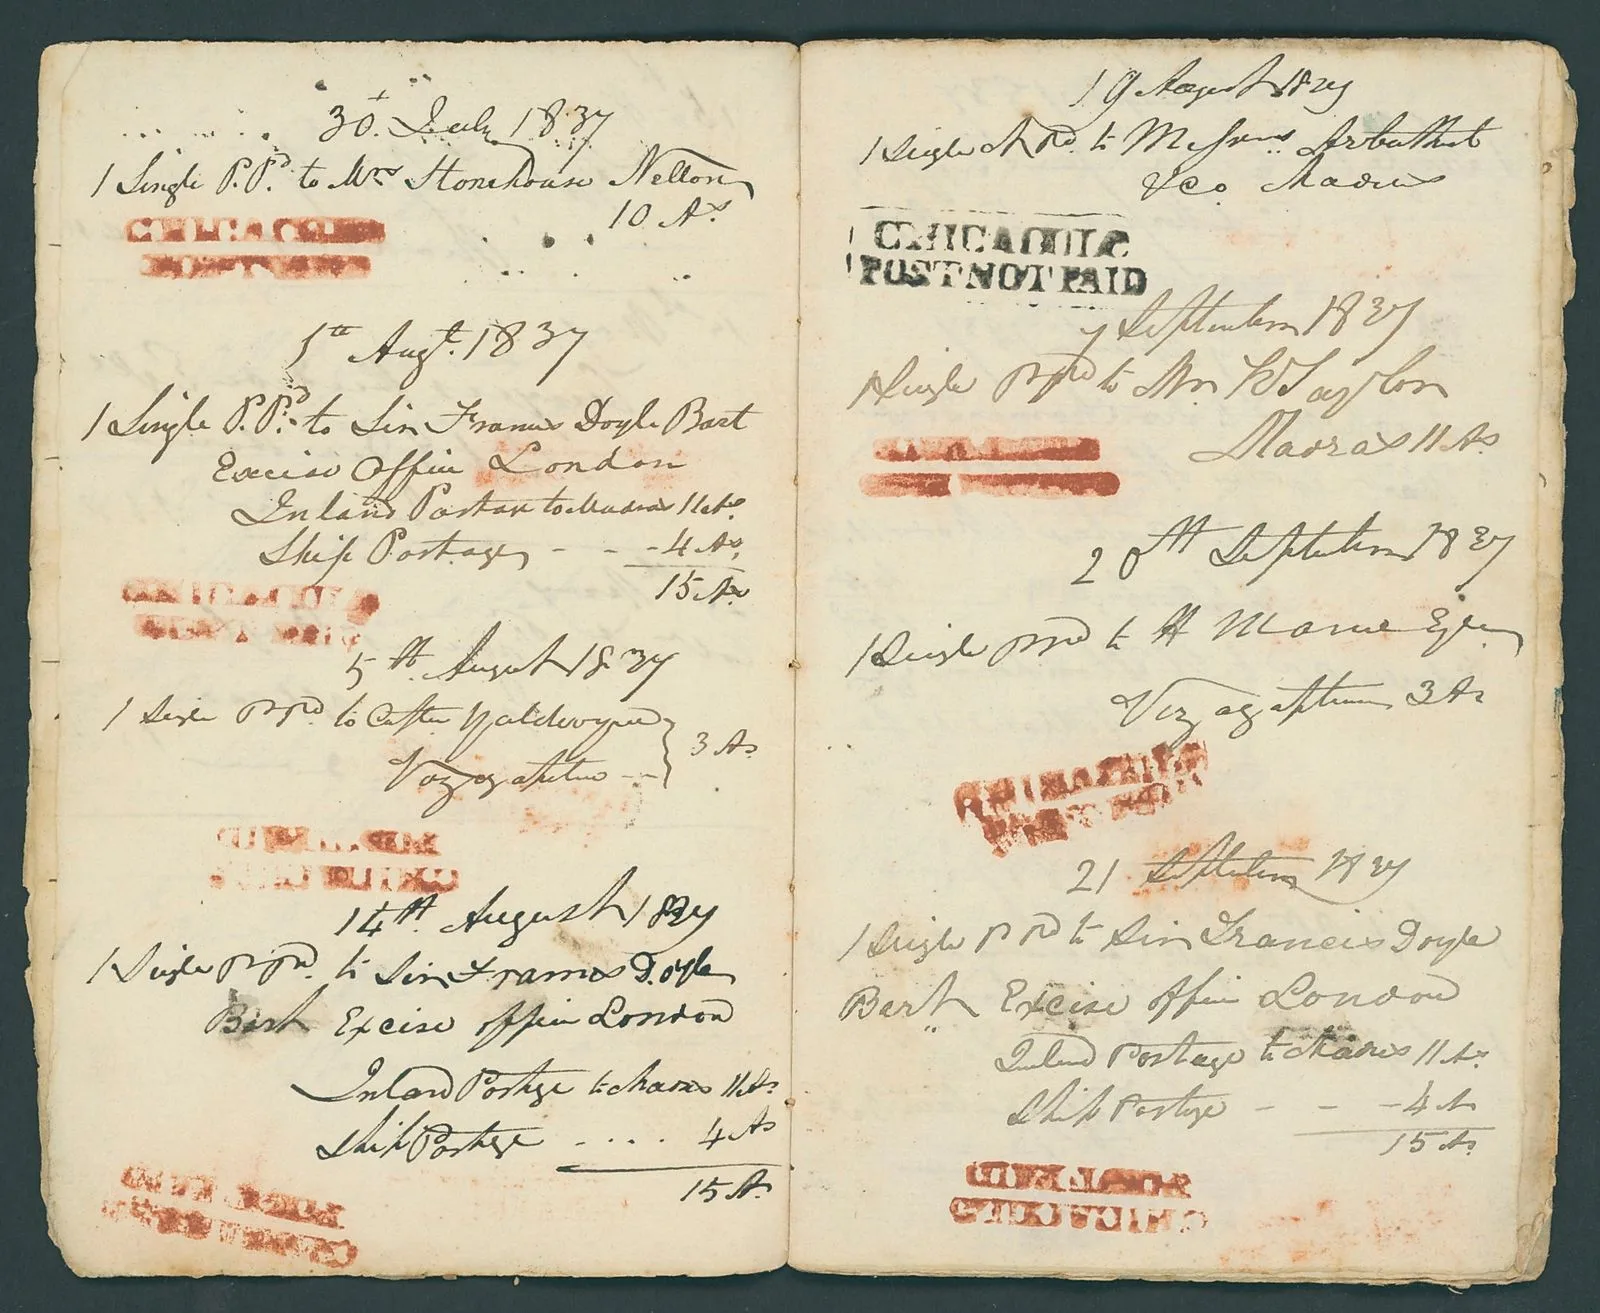 30. July 1837
1 Single P.P.d to Mrs Stonehouse Nellore
10 As.
1st Augt. 1837
1 Single P.P.d to Sir Francis Doyle Bart
Excise Office London
Inland Postage to Madras 11 As.
Ship Postage - - - 4 As.
15 As.
5th August 1837
1 Single P Pd to Captn Yaldwyn
Vizagapatam - - 3 As
14th August 1837
1 Single P Pd. to Sir Francis Doyle
Bart Excise office London
Inland Postage to Madras 11 As.
Ship Postage .... 4 As
15 As.
19 August 1837
1 Single Pd. to Messrs. Arbuthnot
& Co. Madras
CHICACOLE
POST NOT PAID
7 September 1837
1 Single P Pd to Mr Taylor
Madras 11 As
20th September 1837
1 Single P Pd to H
Vizagapatam 3 As
21 September 1837
1 Single P Pd to Sir Francis Doyle
Bart Excise office London
Inland Postage to Madras 11 As.
Ship Postage - - - 4 As
15 As.